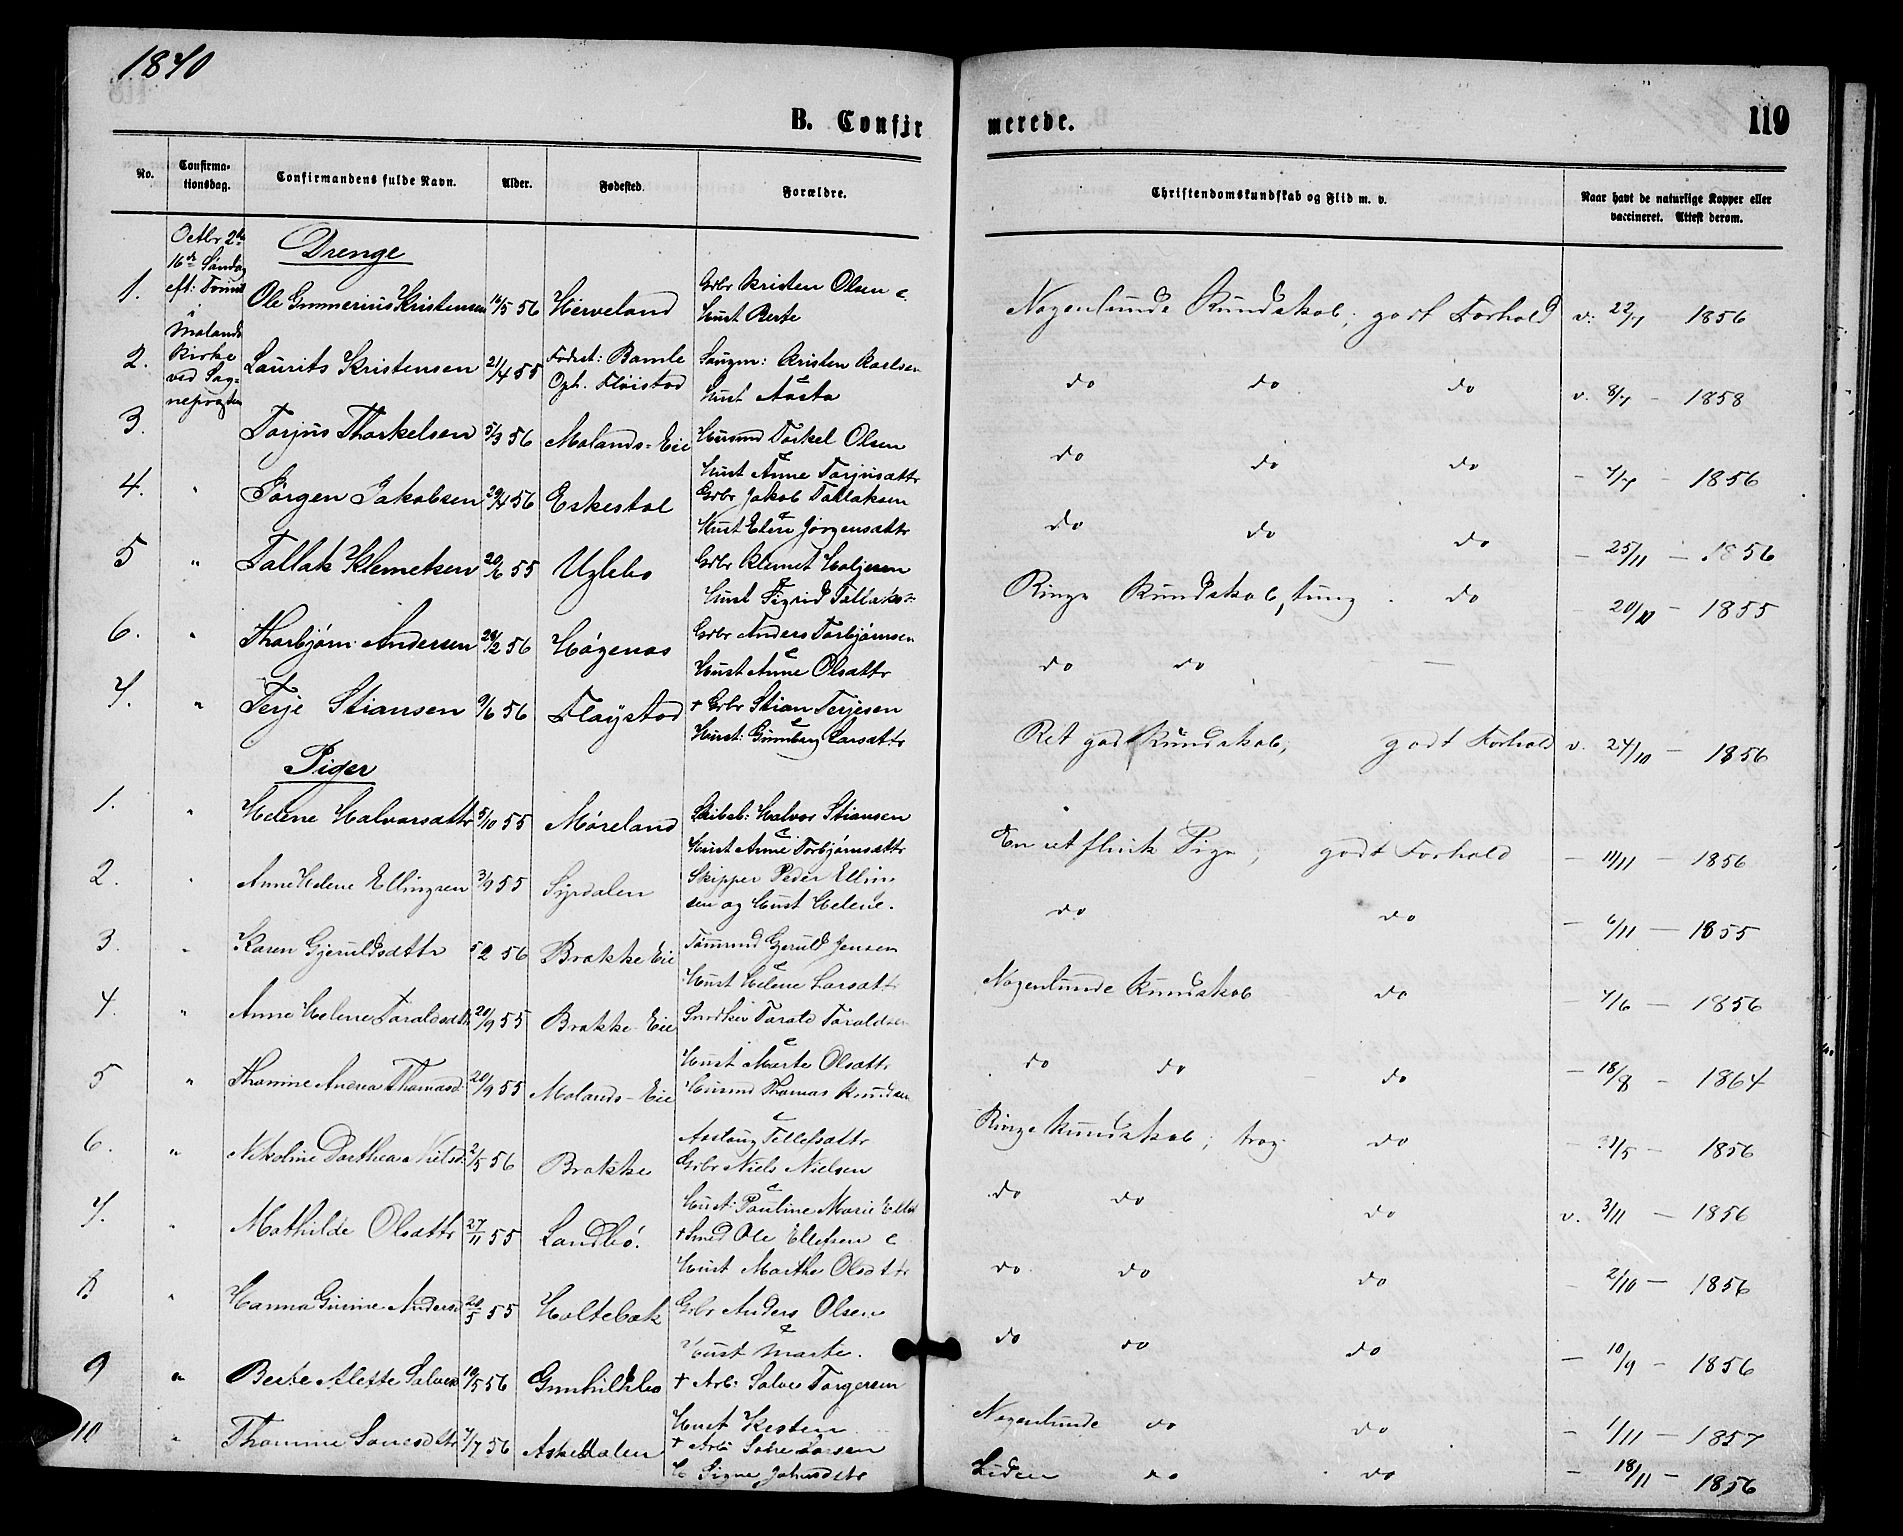 1870
B. Confir
merede.
119
No.
Confirma-
tionsdag.
Confirmandens fulde Navn.
Alder.
Fødested.
Forældre.
Christendomskundskab og Flid m. v.
Naar havt de naturlige Kopper eller
vaccineret. Attest derom.
Octbr 2den
16de Søndag
eft: Trinit
i
Molands
Kirke
ved Sog-
nepræsten
Drenge
1. Ole Gunnerius Kristensen 16/5 56 Herveland Gbr Kristen Olsen &
Hust Berte
Nogenlunde Kundskab, godt Forhold v: 22/7 1856
2. Laurits Kristensen 21/4 55 Fødest: Bamle
Oph. Fløistad
Saugm: Kristen Karlsen
& Hust Aasta
do do do v. 8/7 - 1858
3. Torjus Thorkelsen 5/3 56 Molands-Eie Husmd Torkel Olsen
& Hust Anne Torjusdattr
do do do - 7/7 - 1856
4. " Jørgen Jakobsen 29/4 56 Eskestøl Gbr Jakob Tallaksen
& Hust Eline Jørgensdattr
do do do - 25/11 - 1856
5 " Tallak Klemetsen 20/6 55 Uglebo Gbr Klemet Holjesen
& Hust Sigrid Tallaks
Ringe Kundskab, tung. do - 20/11 - 1855
6. " Thorbjørn Andersen 28/2 56 Høgenos Gbr Anders Torbjørnsen
& Hust Anne Olsdattr
do do —
7. " Terje Stiansen 9/6 56 Fløystad + Gbr Stian Terjesen
& Hust: Gunnberg Larsdattr
Ret god Kundskab, godt Forhold v. 24/10 - 1856
Piger
1. " Helene Halvorsdattr 5/10 55 Møreland Skibsb: Halvor Stiansen
& Hust Anne Torbjørnsdattr
En ret flink Pige, godt Forhold - 11/11 - 1856
2. " Anne Helene Ellingsen 3/9 55 Syrdalen Skipper Peder Elling
sen og Hust Helene.
do do - 6/11 - 1855
3. " Karen Gjeruldsdattr 5 2 56 Brække Eie Tømmd Gjeruld Jensen
& Hust Helene Larsdattr
Nogenlunde Kundskab do - 7/6 - 1856
4. " Anne Helene Taraldsdattr 20/9 55 Brække-Eie Snedker Tarald Taraldsen
& Hust Marte Olsdattr
do do do - 18/8 - 1864
5 " Thomine Andrea Thomasd. 20/9 55 Molands-Eie Husmd Thomas Knudsen
& Aaslaug Tellefsdattr
Ringe Kundskab; træg. do - 31/5 - 1856
6. " Nikoline Dorthea Nielsd. 2/5 56 Brække Gbr Niels Nielsen
& Hust: Pauline Marie
do do do v. 3/11 - 1856
7. " Mathilde Olsdattr 27/11 55 Landbø. + Smed Ole Ellefsen &
Hust Marthe Olsdattr
do do do - 2/10 - 1856
8 " Hanna Gurine Andersd 20/5 55 Holtebæk Gbr Anders Olsen
& Hust Marte.
do do do - 10/9 - 1856
9 " Berte Alette Salves 10/5 56 Gunhildsbo + Arb: Salve Torgersen
Hust Kirsten
Nogenlunde do do - 1/11 - 1857
10 " Thomine 7/7 56 Askedalen + Arb Larsen
& Signe Johnsdttr
Liden do do - 18/11 - 1856